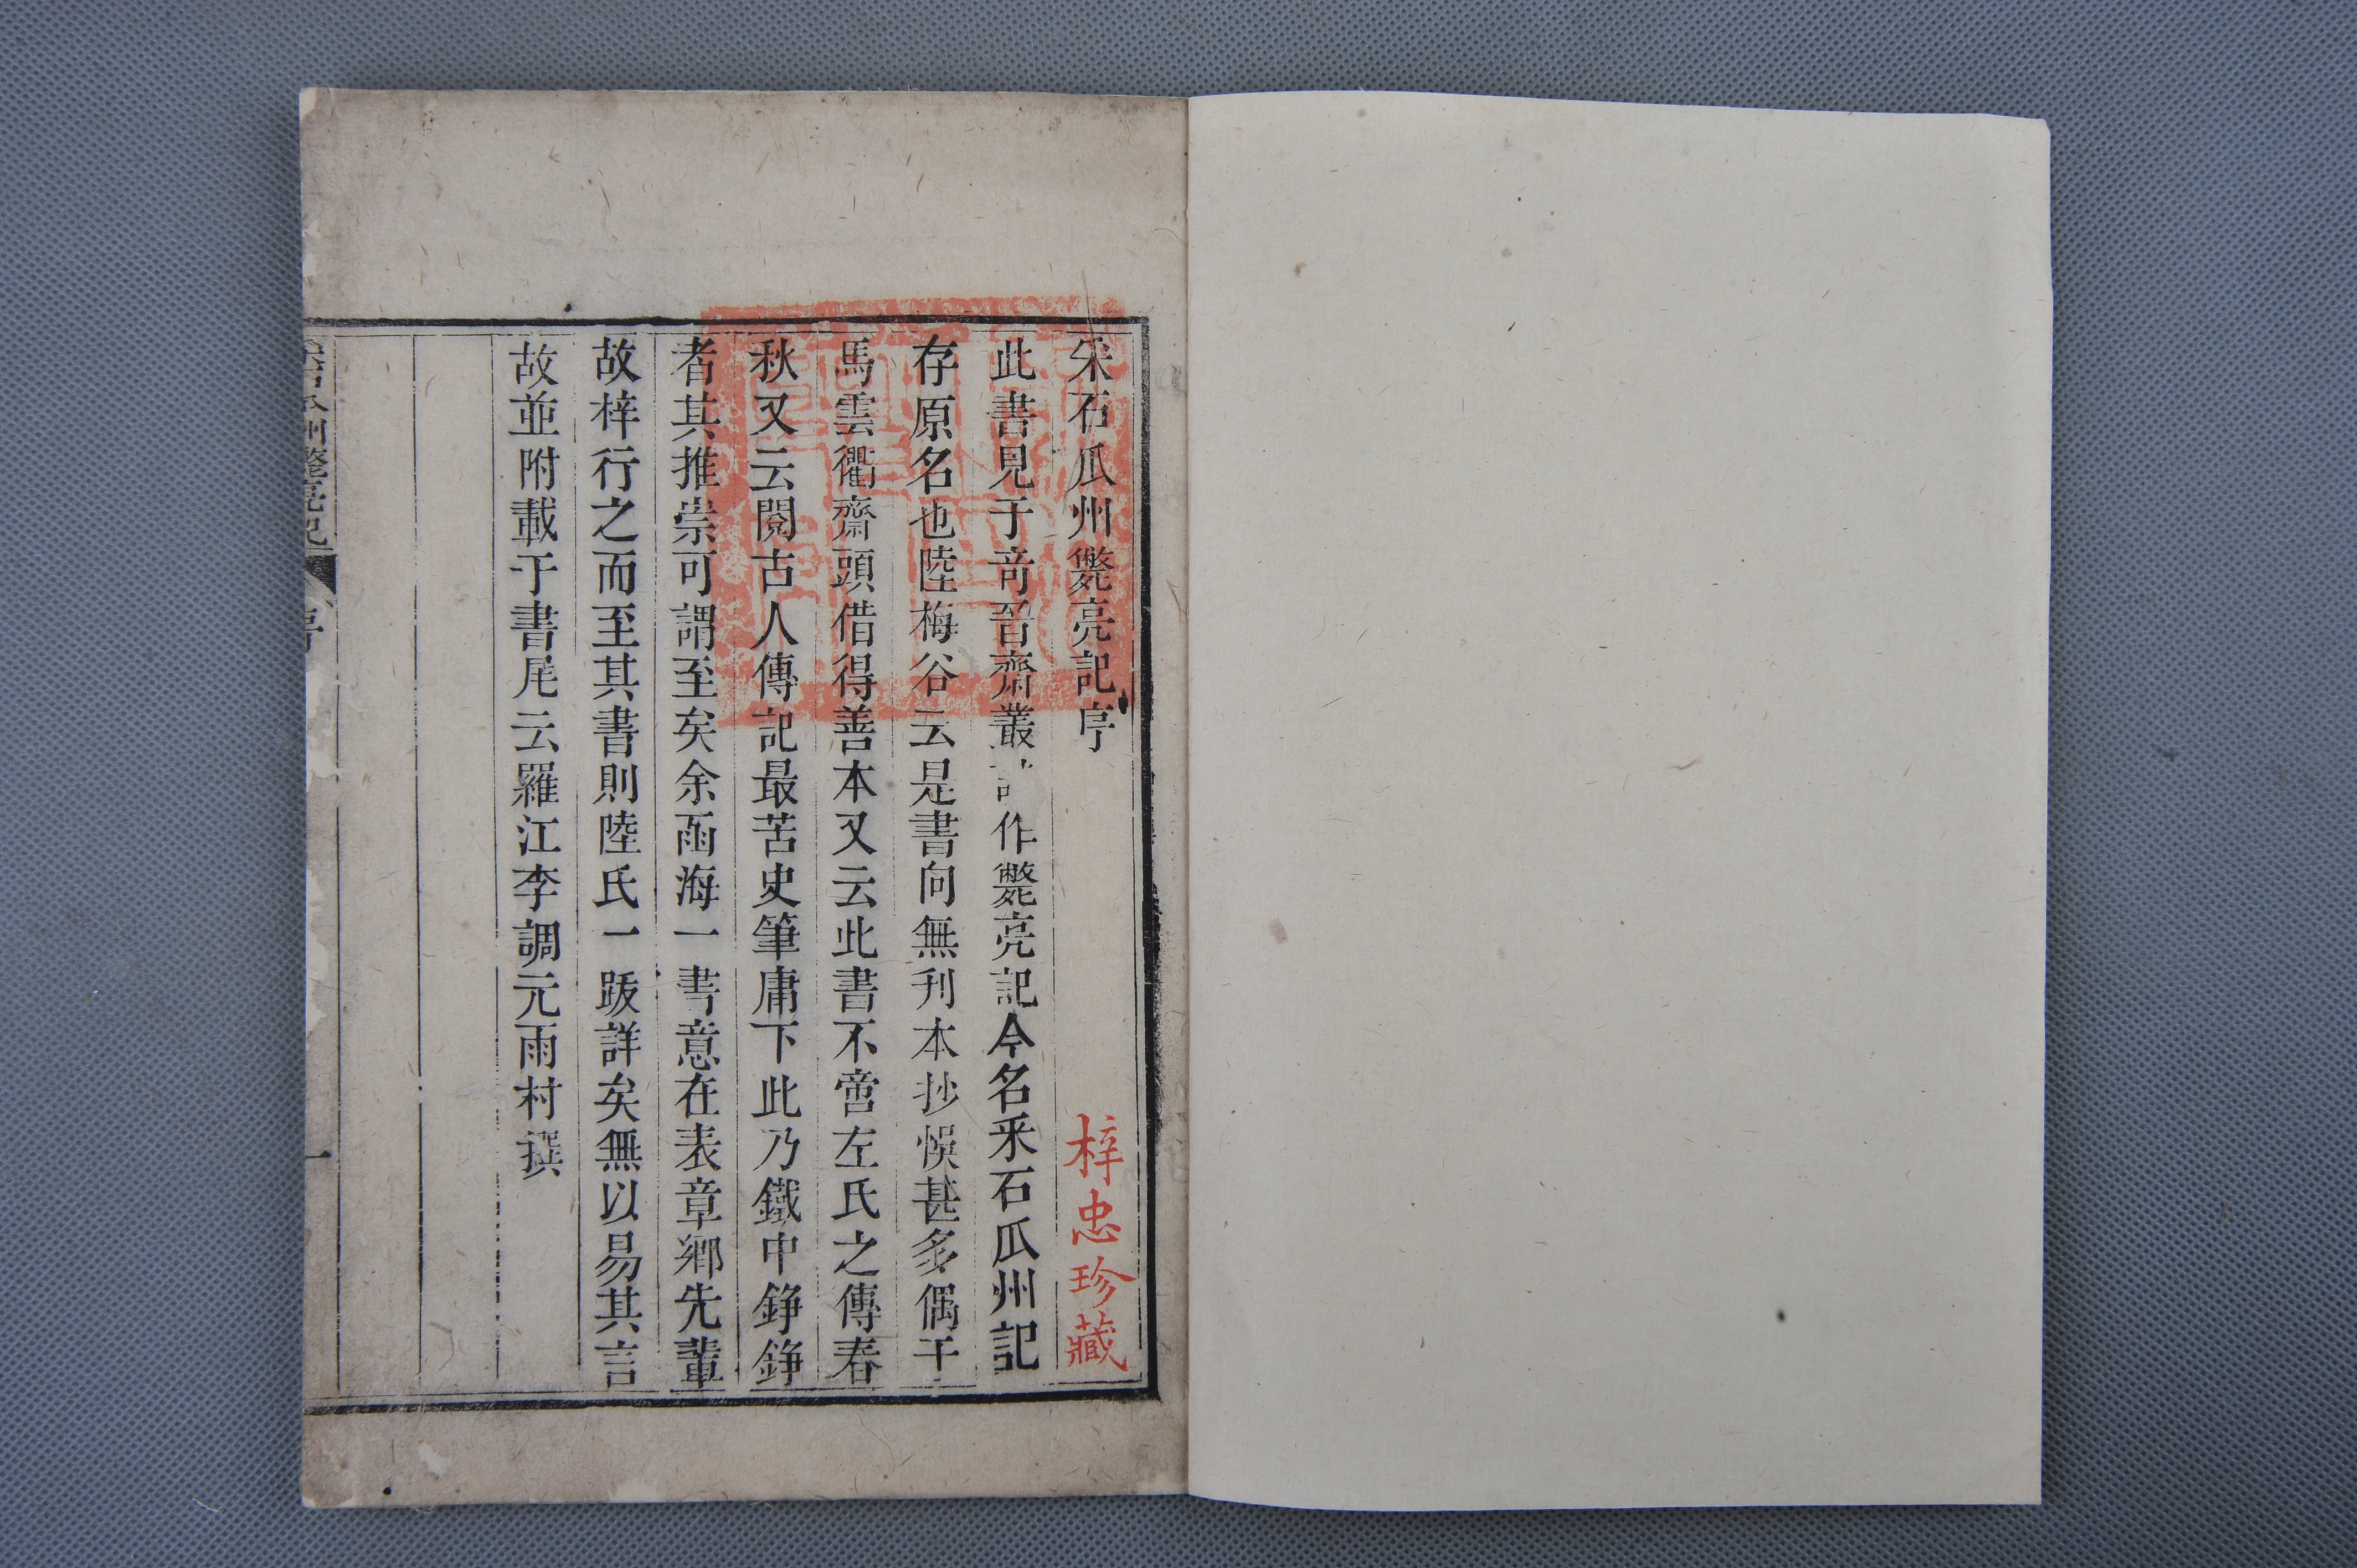 采石瓜州斃亮記序
梓忠珍藏
此書見于奇晉齋叢作斃亮記今名采石瓜州記
存原名也陸梅谷云是書向無刊本抄悞甚多偶于
馬雲衢齋頭借得善本又云此書不啻左氏之傳春
秋又云閱古人傳記最苦史筆庸下此乃鐵中錚錚
者其推崇可謂至矣余函海一書意在表章鄉先輩
故梓行之而至其書則陸氏一跋詳矣無以易其言
故並附載于書尾云羅江李調元雨村撰
石瓜州斃亮記
序
一